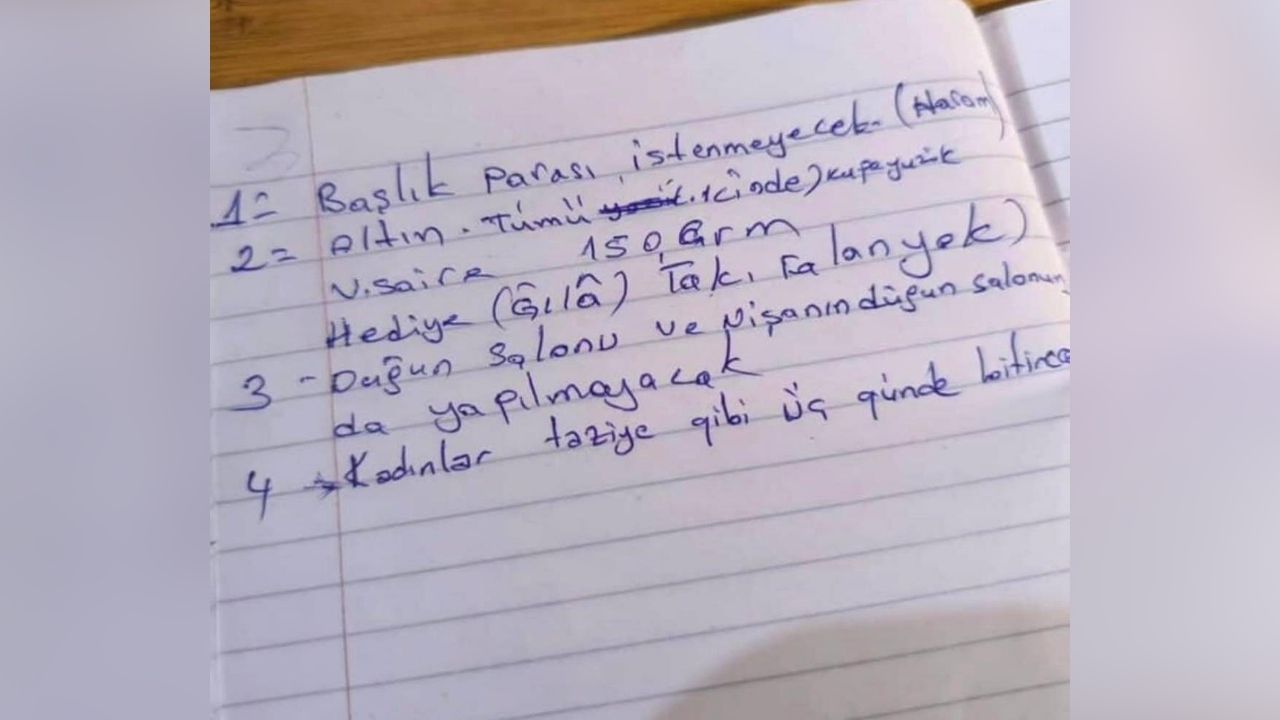 1= Başlık parası istenmeyecek. (Haram)
2= Altın. Tümü içinde) küpe yüzük
V.saire 150 Grm
Hediye (Gılâ) Takı Falan yok)
3 - Düğün Salonu ve Nişanın düğün salonun
da yapılmayacak
4 Kadınlar taziye gibi üç günde bitirec